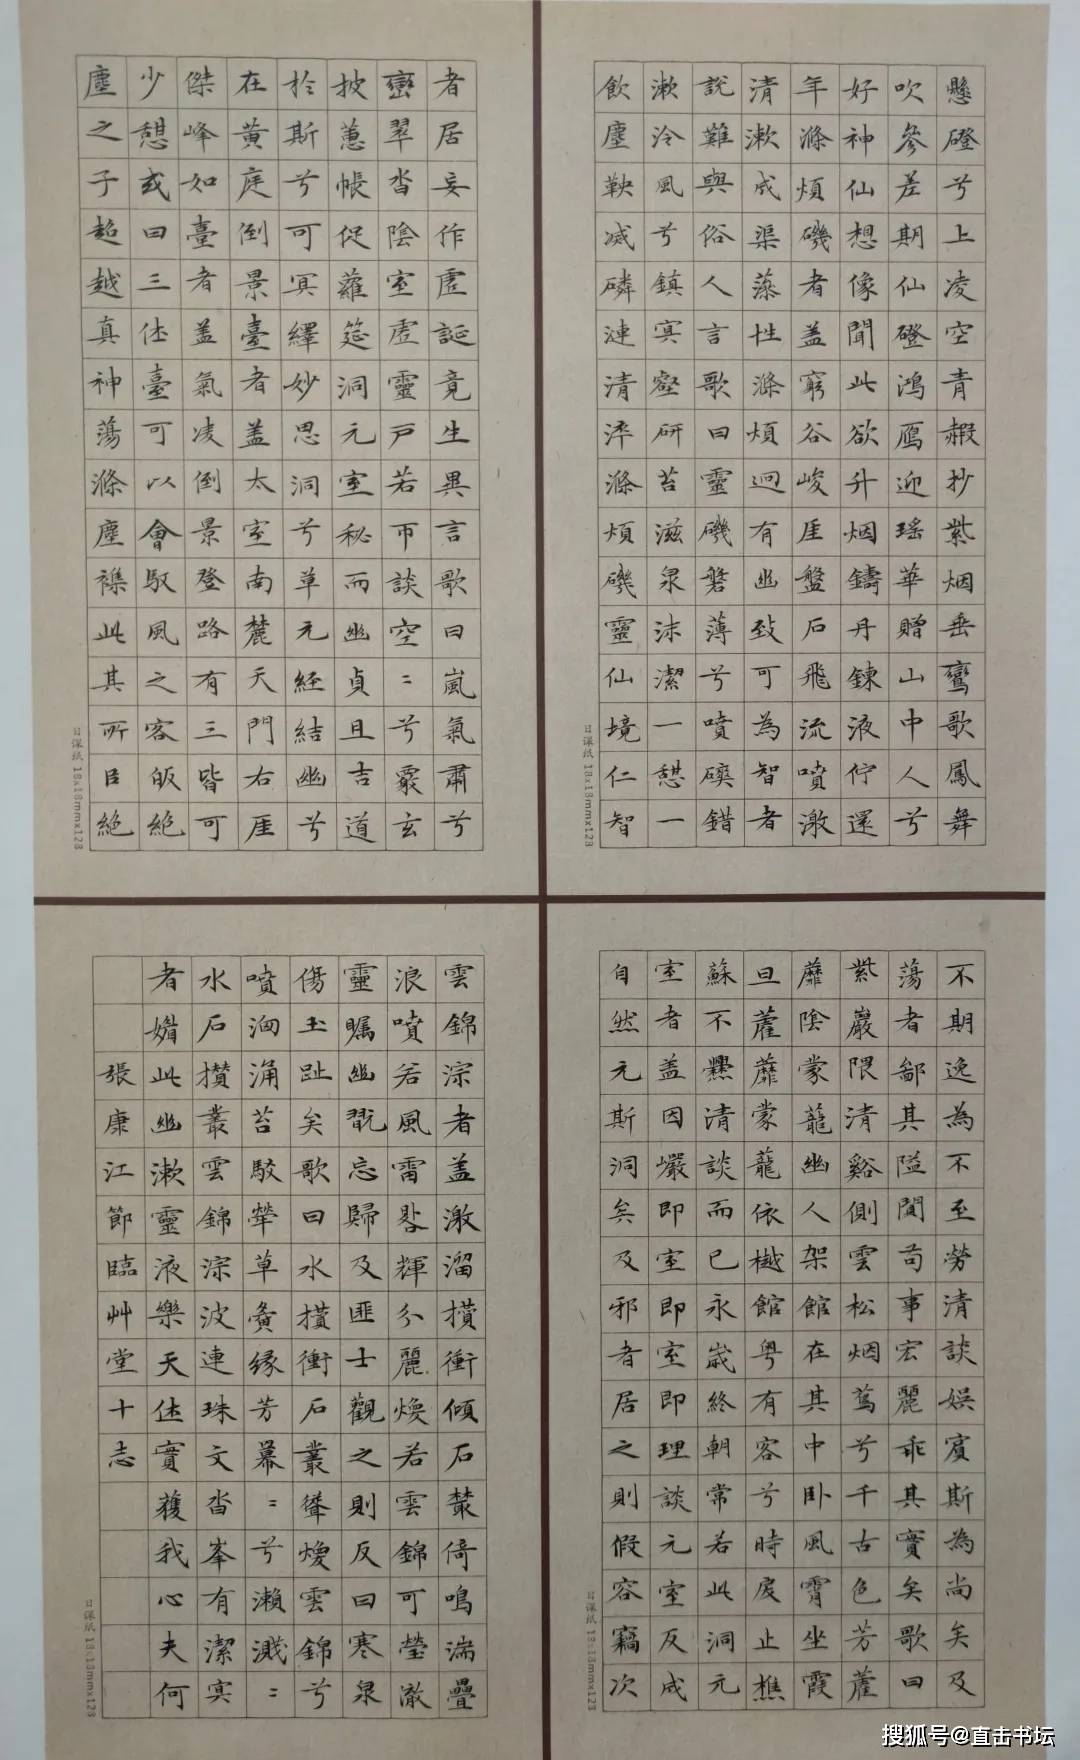 懸磴兮上凌空青赮抄紫烟垂鸞歌鳳舞
吹參差期仙磴鴻鴈迎瑤華贈山中人兮
好神仙想像聞此欲升烟鑄丹鍊液佇還
年滌煩磯者盖窮谷峻厓盤石飛流噴激
清漱成渠蕩性滌煩迥有幽致可為智者
說難與俗人言歌曰靈磯磐薄兮噴磢錯
漱泠風兮鎮冥壑研苔滋泉沫潔一憩一
飲塵鞅滅磷漣清淬滌煩磯靈仙境仁智
日课纸 18x18mmx128
者居妄作虛誕竟生異言歌曰嵐氣肅兮
巒翠沓陰室虛靈戶若帀談空〻兮覈玄
披蕙帳促蘿筵洞元室秘而幽貞且吉道
於斯兮可冥繹妙思洞兮草元經結幽兮
在黃庭倒景臺者盖太室南麓天門右厓
傑峰如臺者盖氣凌倒景登路有三皆可
少憩或曰三休臺可以會馭風之客皈絕
塵之子超越真神蕩滌塵襟此其所㠯絕
日课纸 18x18mmx128
不期逸為不至勞清談娛賓斯為尚矣及
蕩者鄙其隘闃苟事宏麗乖其實矣歌曰
紫巖隈清谿側雲松烟蔦兮千古色芳䕲
蘼陰蒙蘢幽人架館在其中卧風霄坐霞
旦䕲蘼蒙蘢依樾館粤有客兮時戾止樵
蘇不爨清談而已永歲終朝常若此洞元
室者盖因巖即室即室即理談元室反成
自然元斯洞矣及邪者居之則假容竊次
日课纸 18x18mmx128
雲錦淙者盖激溜攢衝傾石叢倚鳴湍疊
浪噴若風雷晷輝分麗煥若雲錦可瑩澈
靈矚幽翫忘歸及匪士觀之則反曰寒泉
傷玉趾矣歌曰水攢衝石叢聳煥雲錦兮
噴洶涌苔駮犖草夤緣芳冪〻兮瀨濺〻
水石攢叢雲錦淙波連珠文沓峯有潔冥
者媚此幽漱靈液樂天休實獲我心夫何
張康江節臨艸堂十志
日课纸 18x18mmx128
搜狐号@直击书坛